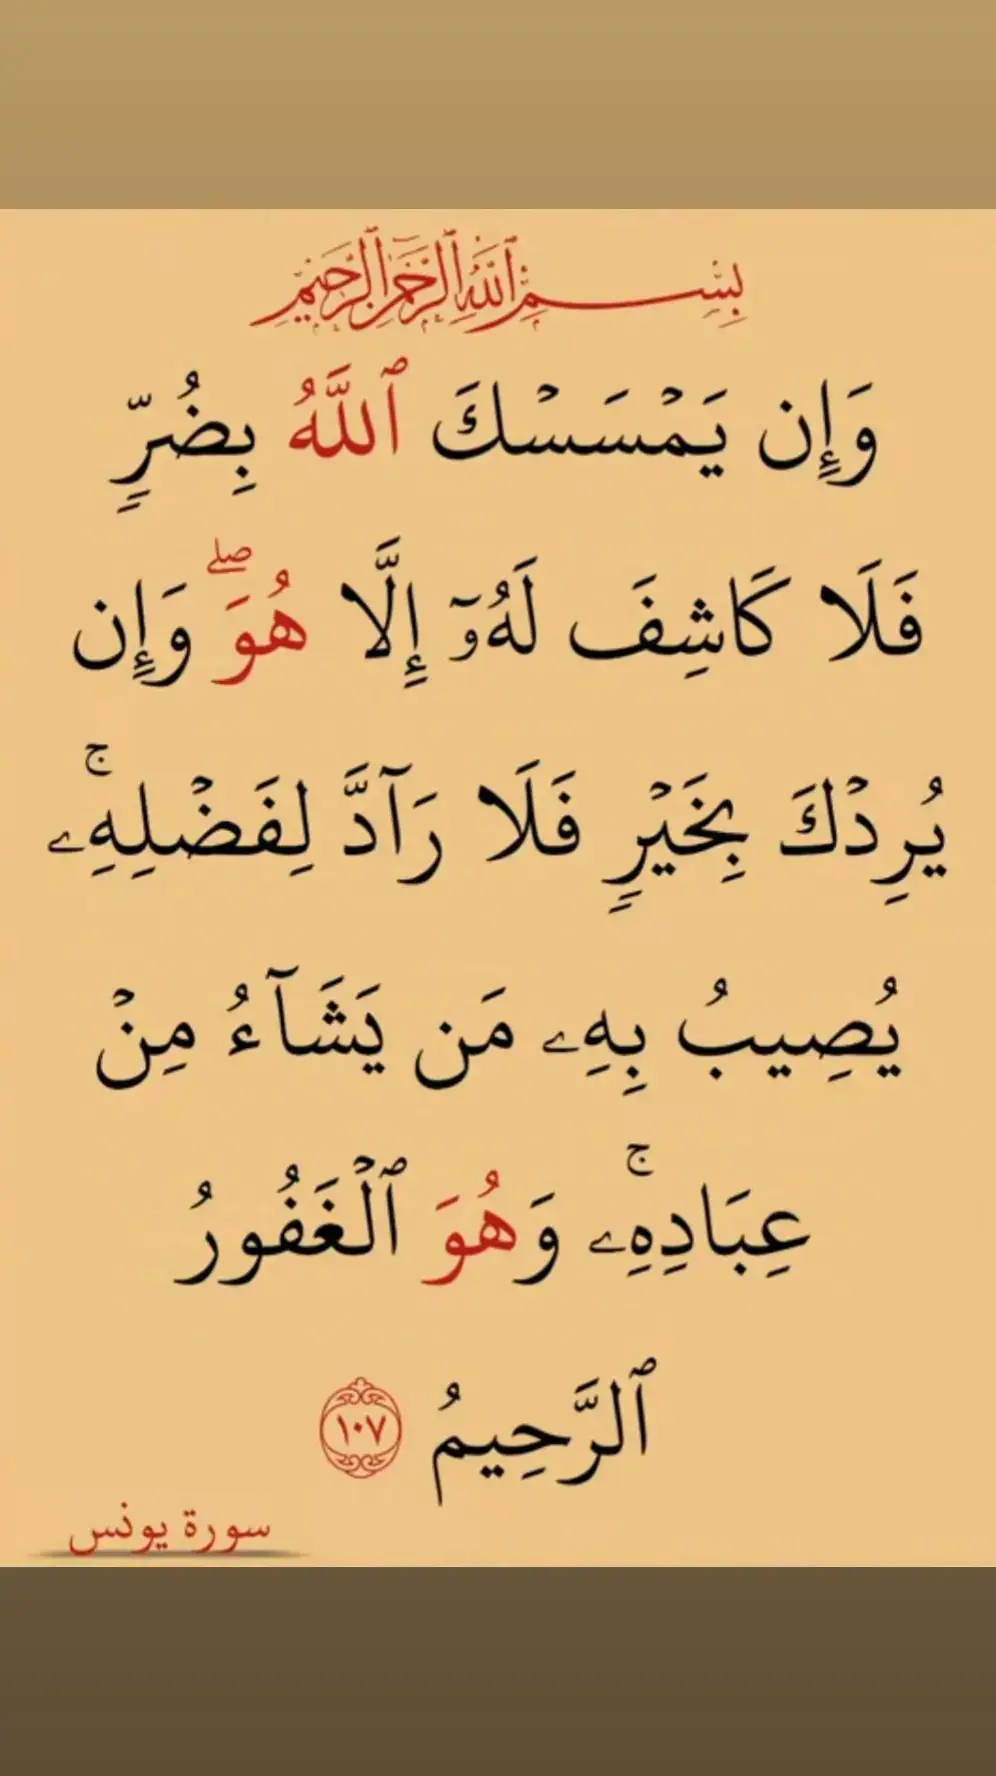 بِسْمِ ٱللَّهِ ٱلرَّحْمَٰنِ ٱلرَّحِيمِ
وَإِن يَمْسَسْكَ ٱللَّهُ بِضُرٍّ
فَلَا كَاشِفَ لَهُۥٓ إِلَّا هُوَ ۖ وَإِن
يُرِدْكَ بِخَيْرٍ فَلَا رَآدَّ لِفَضْلِهِۦ ۚ
يُصِيبُ بِهِۦ مَن يَشَآءُ مِنْ
عِبَادِهِۦ ۚ وَهُوَ ٱلْغَفُورُ
ٱلرَّحِيمُ ١٠٧
سورة يونس